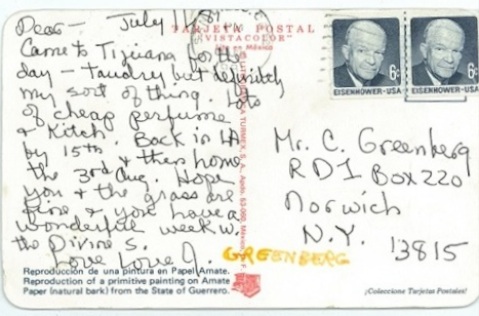 Dear— July 11
TARJETA POSTAL
"VISTACOLOR"
Hecho en México
Came to Tijuana for the
day — taudrey but definitely
my sort of thing. Lots
of cheap perfume
& Kitch. Back in LA
by 15th & then home
the 3rd Aug. Hope
you & the grass are
fine & you have a
wonderful week w.
the Divine S.
Love Love J.
Reproducción de una pintura en Papel Amate.
Reproduction of a primitive painting on Amate
Paper (natural bark) from the State of Guerrero.
6¢ 6¢
EISENHOWER-USA EISENHOWER-USA
Mr. C. Greenberg
RD1 Box 220
Norwich
N.Y. 13815
GREENBERG
¡Coleccione Tarjetas Postales!